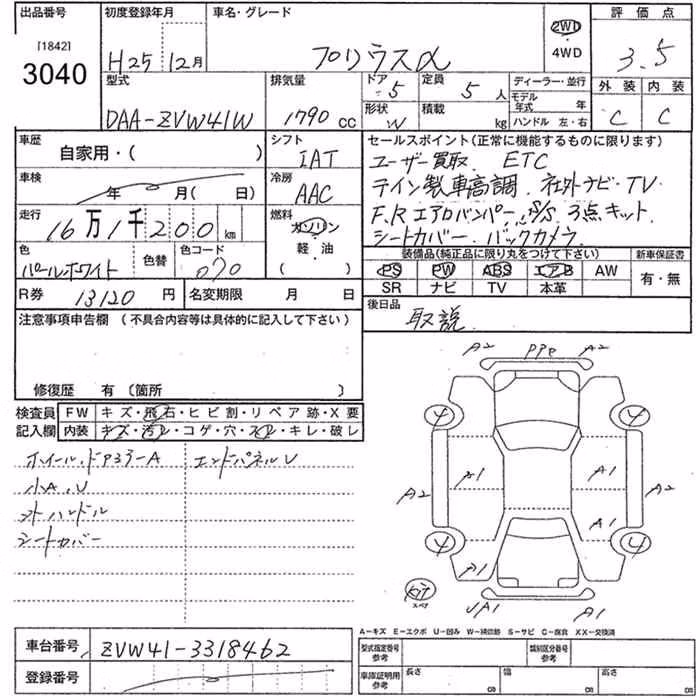 出品番号 初度登録年月 車名・グレード 評価点
[1842]
3040 H25 12月 プリウスα 2WD ・4WD 3.5
型式 排気量 ドア 5 定員 5人 ディーラー・並行 外装 内装
DAA-ZVW41W 1790cc 形状 W 積載 kg モデル年式 年 ハンドル 左・右 C C
車歴 自家用・( ) シフト IAT セールスポイント(正常に機能するものに限ります)
ユーザー買取 ETC
車検 年 月( 日) 冷房 AAC テイン製車高調. 社外ナビ・TV
走行 16万1千200km 燃料 ガソリン 軽・油 ( ) F.Rエアロバンパー. S/S 3点キット.
シートカバー. バックカメラ.
色 パールホワイト 色替 色コード 070
装備品(純正品に限り丸をつけて下さい) 新車保証書
PS PW ABS エアB AW 有・無
SR ナビ TV 本革
R券 13120円 名変期限 月 日 後日品 取説
注意事項申告欄 (不具合内容等は具体的に記入して下さい)
修復歴 有(箇所 )
検査員 FW キズ・飛石・ヒビ割・リペア跡・X要
記入欄 内装 キズ・汚レ・コゲ・穴・スレ・キレ・破レ
A2 A2
4 4
A1 A1
A2 A2
A1
4 4
A1
UA1 A1
スペア
エンドパネルU
小A.U
シートカバー
A-キズ E-エクボ U-凹み W-補修跡 S-サビ C-腐食 XX-交換済
車台番号 ZVW41-3318462 型式指定番号 参考 類別区分番号 参考
登録番号 車庫証明用 参考 長さ cm 幅 cm 高さ cm